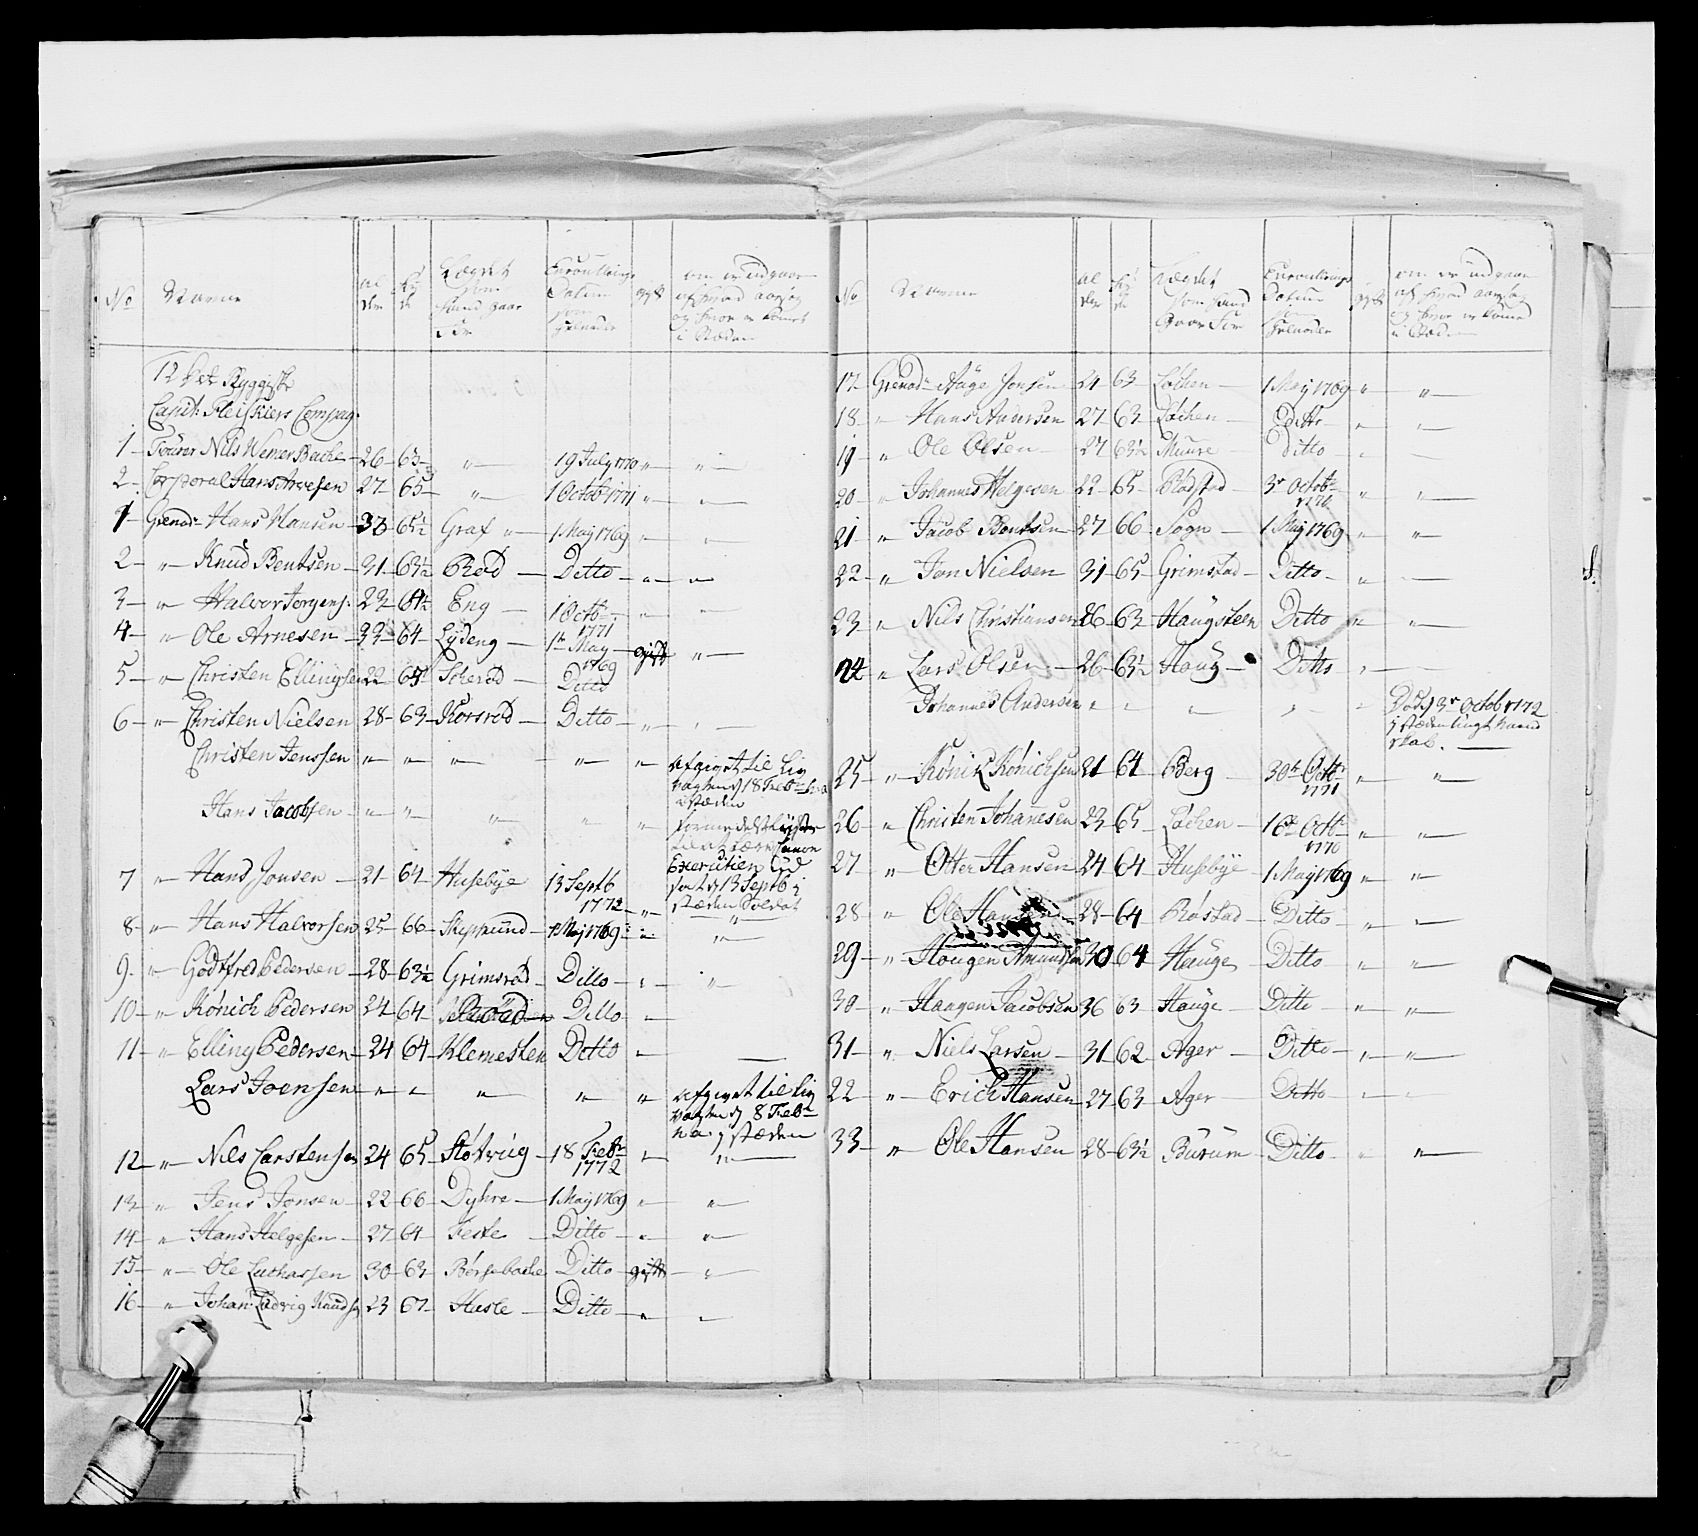 No Navne al der Høy de Lægdet som hand gaar for Enroullrings Datum som Grenader gift om er udgaaen af hvad aarsag og hvor er komet i Stæden
12te
Capit: Fleischers Compag:
1 Fourer Nils Werner Bache 26 63 " 19 July 1770 " "
2 Corporal Hans Arvesen 27 65 " 1 Octob 1771 " "
1 Grenad: Hans Hansen 65½ Graf " 1 Maj 1769 " "
2 " Knud Bentsen 31 63½ Ditto " "
3 " Halvor Jørgens: 23 Eng 1 Octb: 1771 " "
4 " Ole Arnesen 33 64 Lydeng 1te May 1769 gift "
5 " Christen Ellingsen 22 Ditto
6 " Christen Nielsen 28 63 Korsrød Ditto " "
Christen Jenssen " " " " " afgivet til Liv vagten d 18 Febr: i stæden
Hans Jacobsen " " " " "
Execution ud sat d 13 Septb i stæden Soldat
7 " Hans Jonsen 21 64 Husebye 13 Septb 1772 "
8 " Hans Halvorsen 25 66 1 Maj 1769 " "
9 " Godtfred Pedersen 28 63½ Grimsrød Ditto " "
10 " Kønich Pedersen 24 64 Ditto "
11 " Elling Pedersen 24 64 Klemesten Ditto "
Lars Joensen " " " " " afgivet til Liv vagten d 8 Febr: i stæden
12 " Nils Carstensen 24 65 Støtvig 18 Febr: 1772 " "
13 " Jens Jonsen 22 66 Dyhre 1 Maj 1769 " "
14 " Hans Helgesen 27 64 Feste Ditto " "
15 " Ole Luthassen 30 63 Børsebache Ditto gift "
16 " Johan: Ludvig Knudsen 23 67 Hasle Ditto " "
No Navne al der Høy de Lægdet som hand gaar for Enroullrings Datum som Grenader gift om er udgaaen af hvad aarsag og hvor er komed i Stæden
17 Grenad: Aage Jonsen 24 63 Løchen 1 Maj 1769 " "
18 " Hans Andersen 27 63 Løchen Ditto " "
19 " Ole Olsen 27 63½ Muure Ditto "
20 " Johannes Helgesen 22 65 Rødstad 3de Octob: 1770 " "
21 " Jacob Bentsen 27 66 Sogn 1 Maj 1769 " "
22 " Jon Nielsen 31 65 Grimstad Ditto "
23 " Nils Christiansen 26 63 Haugsteen Ditto " "
24 " Lars Olsen 26 63½ Haug Ditto "
Johannes Andersen " " " " " Død d 3de Octob 1772 i stæden
25 " Kønik Kønichsen 21 64 Berg 30te Octbr 1771 " "
26 " Christen Johanesen 23 65 Løchen 16de Octb: 1770 " "
27 " Otter Hansen 24 64 Husebye 1 Maj 1769 " "
28 " Ole Hansen 28 64 Røstad Ditto " "
29 " Haagen Amundsen 30 64 Hauge Ditto " "
30 " Haagen Jacobsen 36 63 Hauge Ditto " "
31 " Niels Larsen 31 62 Ager Ditto " "
22 " Erich Hansen 27 63 Ager Ditto "
33 " Ole Hansen 28 63½ Burum Ditto " "